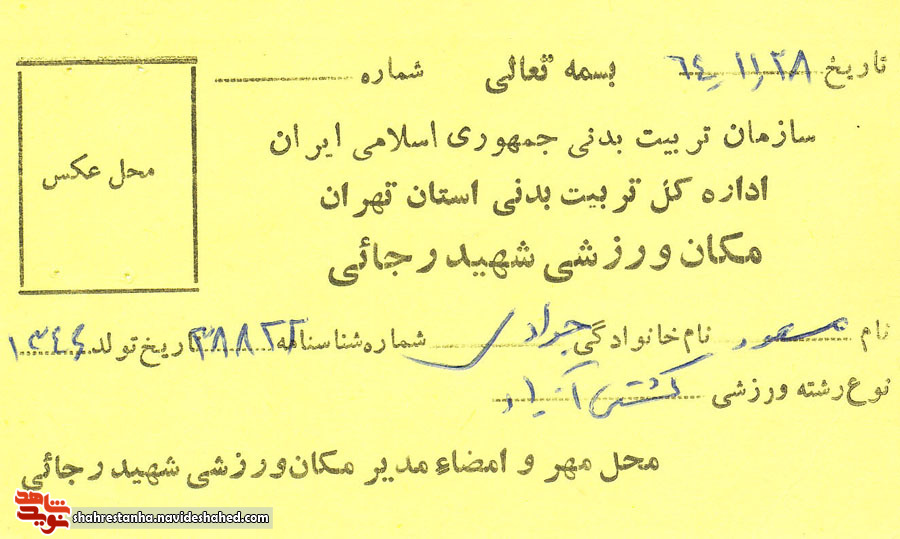 تاریخ ۶۴ر۱۱ر۲۸ بسمه تعالی شماره
سازمان تربیت بدنی جمهوری اسلامی ایران
اداره کل تربیت بدنی استان تهران
مکان ورزشی شهید رجائی
محل عکس
نام مسعود نام خانوادگی جوادی شماره شناسنامه تاریخ تولد ۱۳۴۶
نوع رشته ورزشی کشتی آزاد
محل مهر و امضاء مدیر مکان ورزشی شهید رجائی
نوید شاهد
shahrestanha.navideshahed.com